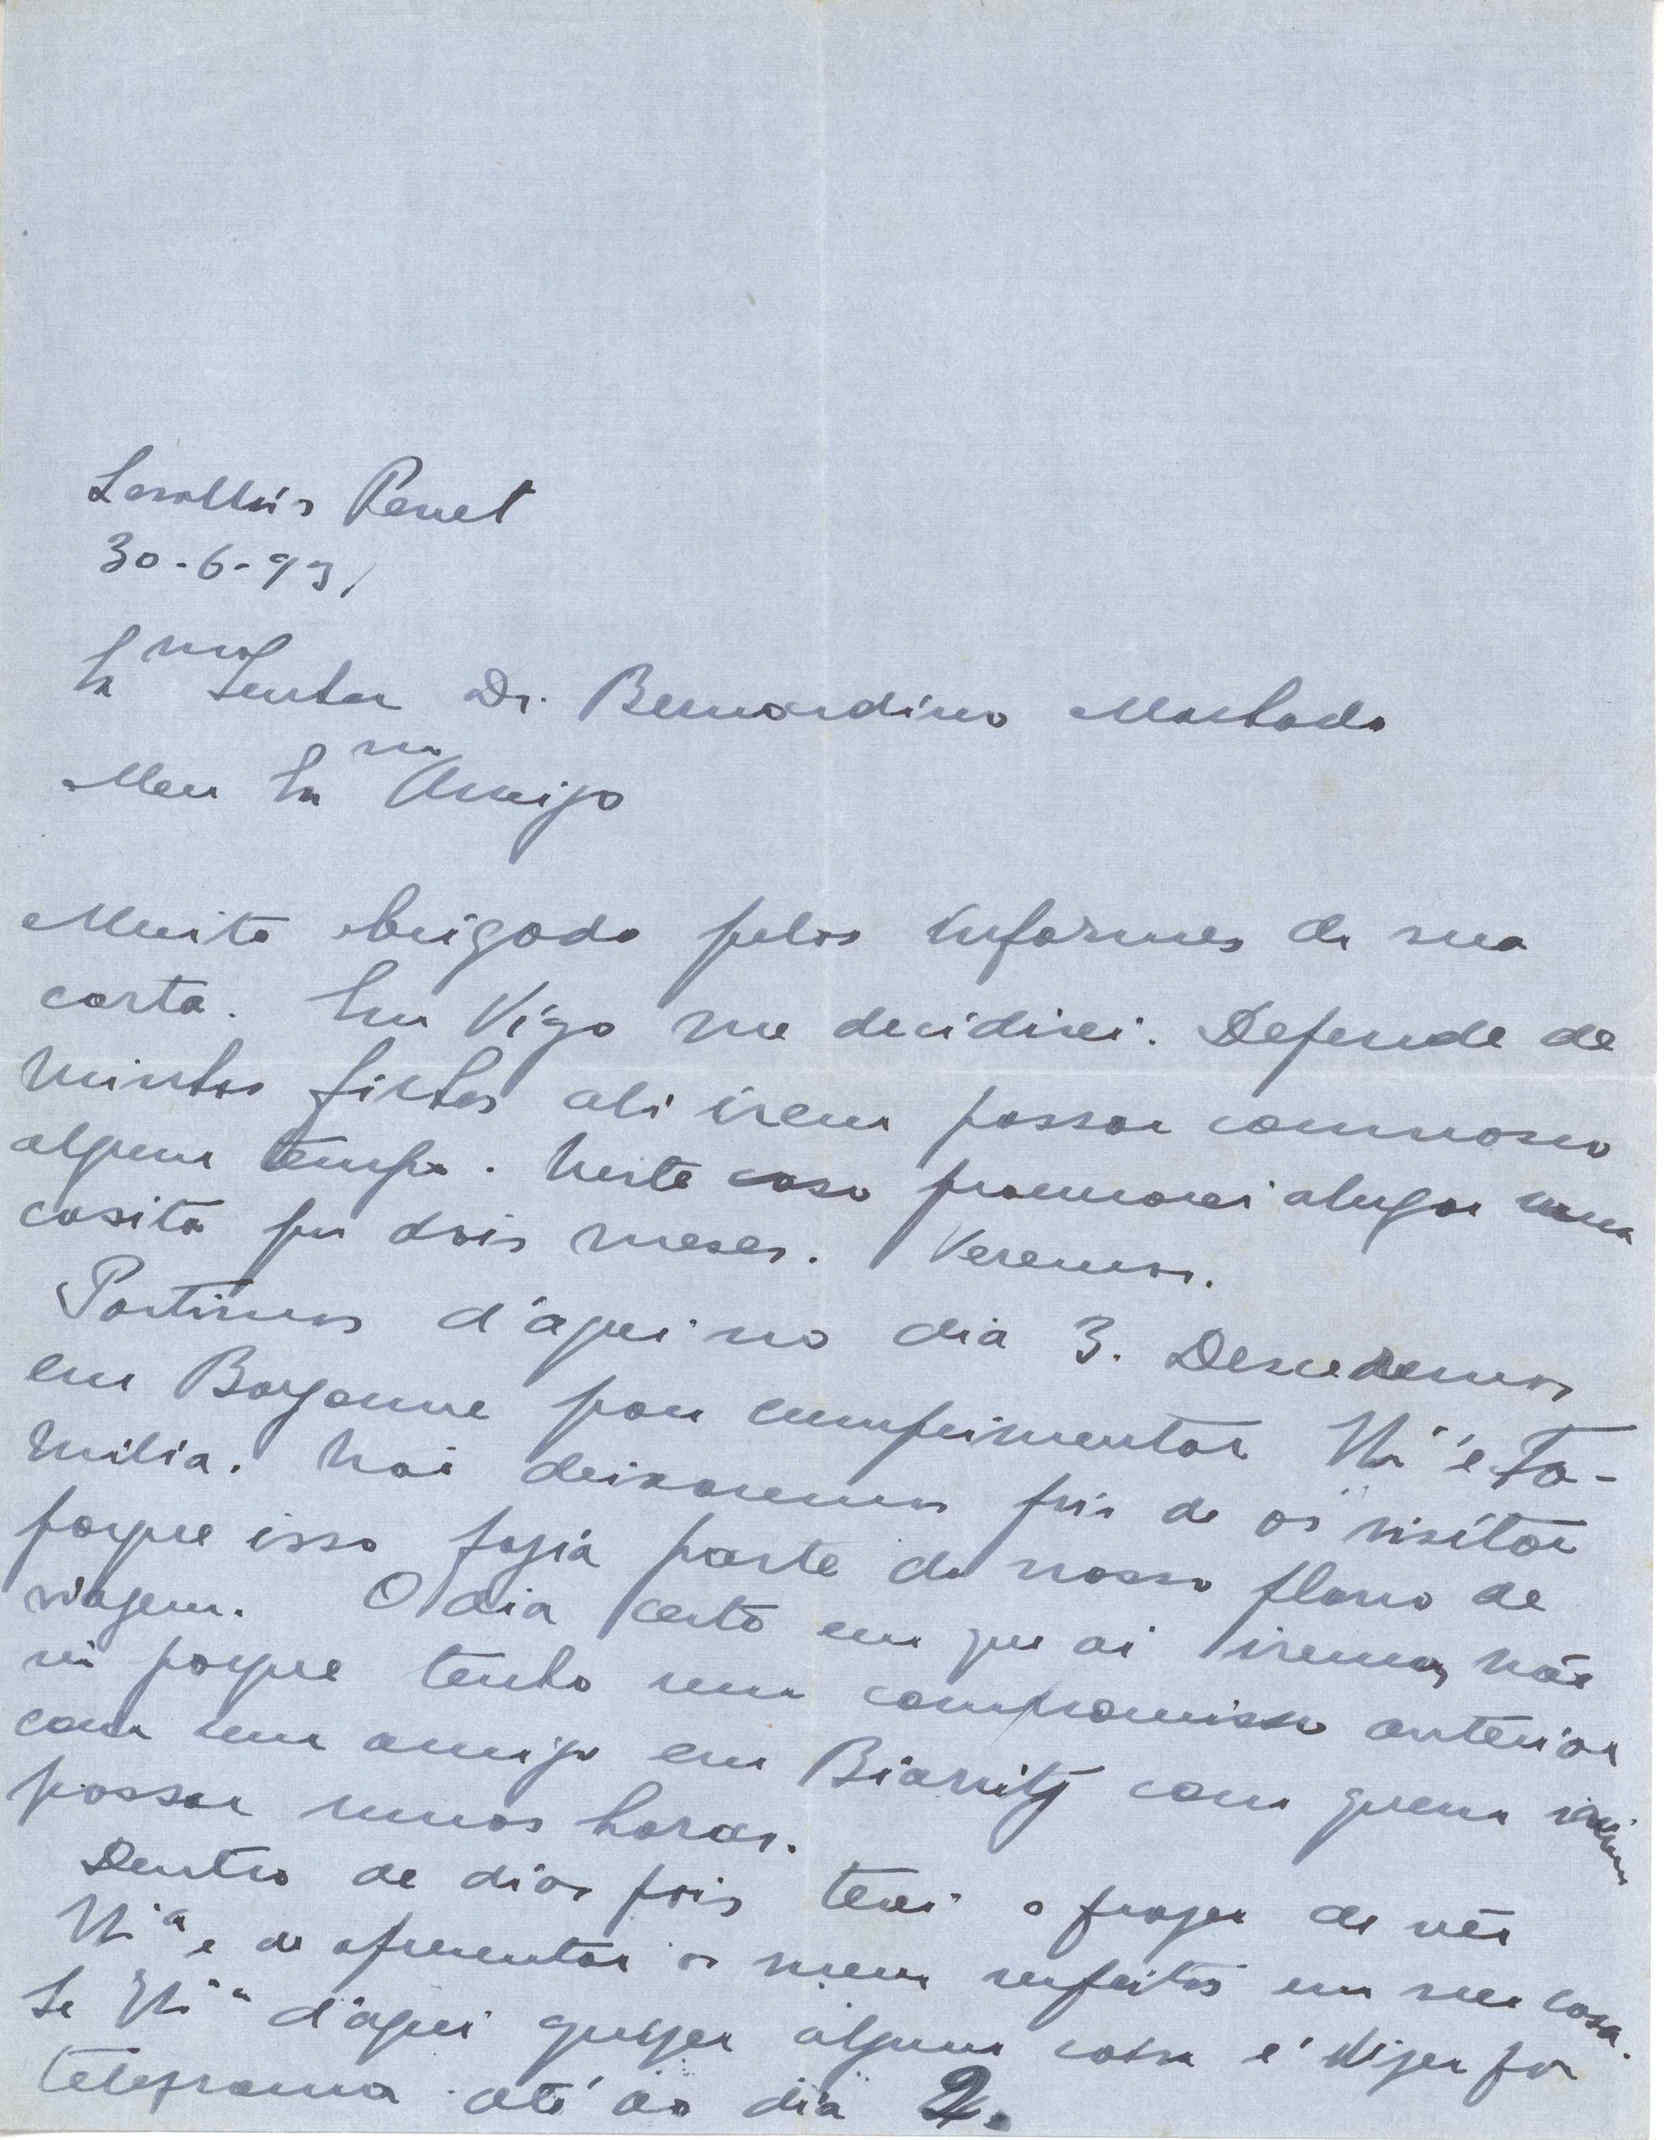 Levallois Perret
30-6-931
Exmo Senhor Dr. Bernardino Machado
Meu Exmo Amigo
Muito obrigado pelos informes de sua
carta. Em Vigo me decidirei. Depende de
minhas filhas ali irem passar comnosco
algum tempo. Neste caso procurarei alugar uma
casita por dois meses. Veremos.
Partimos d'aqui no dia 3. Desceremos
em Bayonne para cumprimentar V. Exª e Fa-
milia. Não deixaremos pois de os visitar
porque isso fazia parte do nosso plano de
viagem. O dia certo em que ai iremos não
sei porque tenho um compromisso anterior
com um amigo em Biarritz com quem
passar umas horas.
Dentro de dias pois terei o prazer de vêr
V. Exª e de apresentar os meus respeitos em sua casa.
Se V. Exª d'aqui quizer alguma coisa é dizer por
telegrama até ao dia 2.